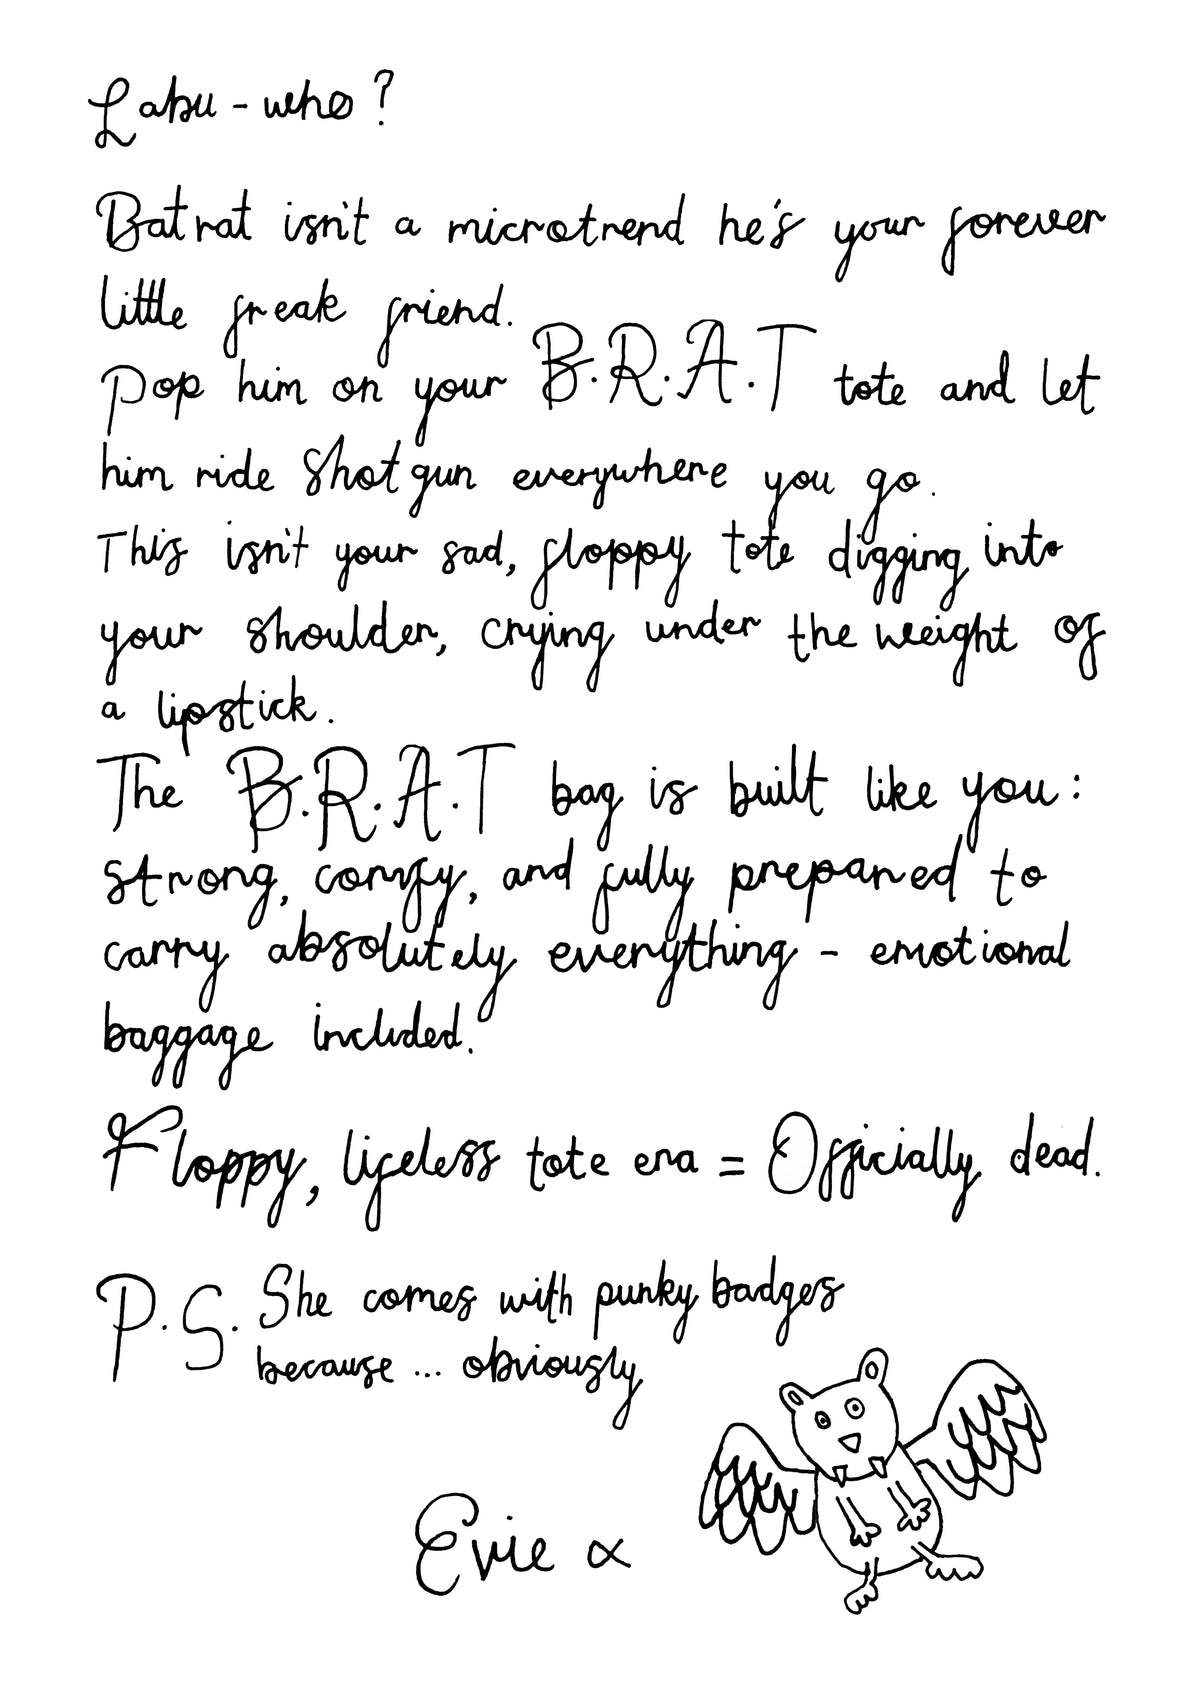 Labu - who?
Batrat isn't a microtrend he's your forever
little freak friend.
Pop him on your B.R.A.T tote and let
him ride shotgun everywhere you go.
This isn't your sad, floppy tote digging into
your shoulder, crying under the weight of
a lipstick.
The B.R.A.T bag is built like you:
strong, comfy, and fully prepared to
carry absolutely everything - emotional
baggage included.
Floppy, lifeless tote era = Officially dead.
P.S. She comes with punky badges
because ... obviously
Evie x